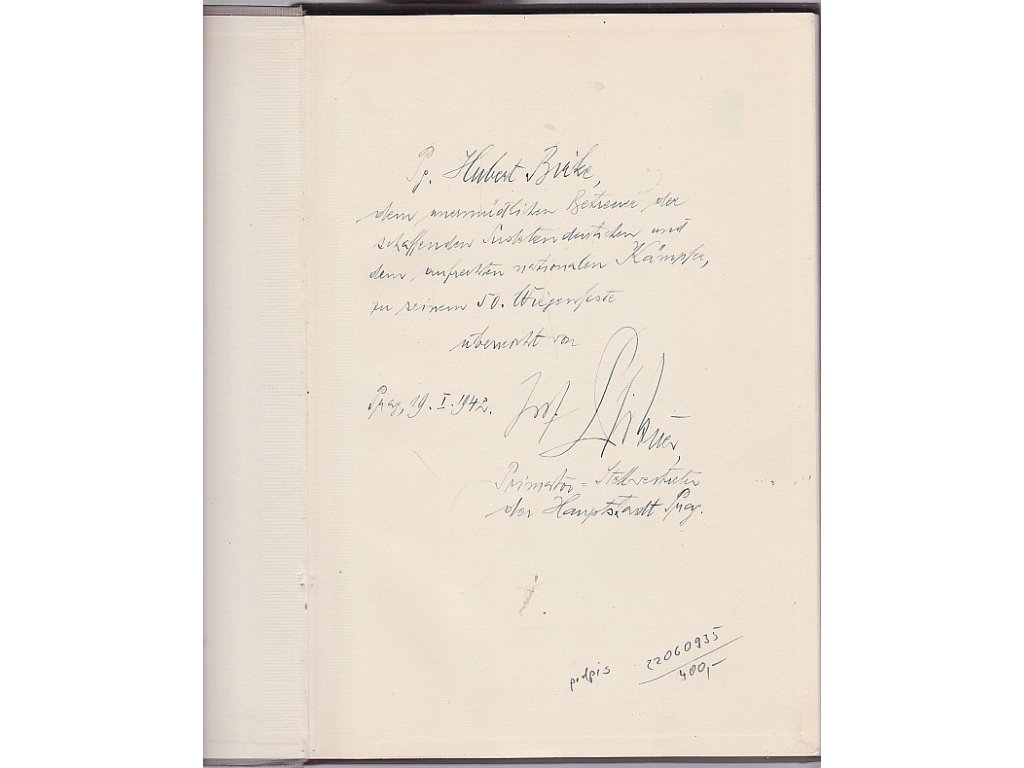 Pg. Hubert Birke,
dem unermüdlichen Betreuer der
schaffenden Sudetendeutschen und
dem aufrechten nationalen Kämpfer,
zu seinem 50. Wiegenfeste
überreicht von
Prag, 19.I.1942. Josef
Primator-Stellvertreter
der Hauptstadt Prag.
podpis 22060935
400,-